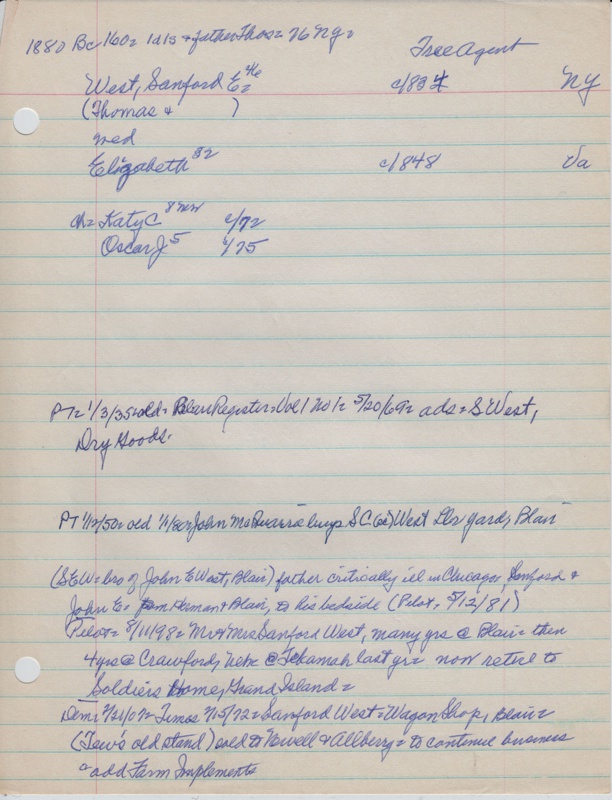 1880 Bc 160= 1d1s & father Thos= 76 Ng=
Tree Agent
West, Sanford E= 46 c/834 NY
(Thomas & )
med
Elizabeth 32 c/848 Va
ch= Katy C 8 c/72
Oscar J 5 c/75
PT= 1/3/35= old= Blair Register= Vol 1 No 1= 5/20/69= ads= S West,
Dry Goods.
PT 1/12/50= old John buys S C West Lbr yard, Blair
(SEW= bro of John E West, Blair) father critically ill in Chicago, Sanford &
John E= from Herman & Blair, to his bedside (Pilot, 5/12/81)
Pilot= 8/11/98= Mr & Mrs Sanford West, many yrs @ Blair= then
4 yrs @ Crawford, Nebr @ Tekamah last yr= now retire to
Soldiers Home, Grand Island=
Times Sanford West= Wagon Shop, Blair=
(Tew's old stand) sold to Newell & Allberry= to continue business
add Farm Implements